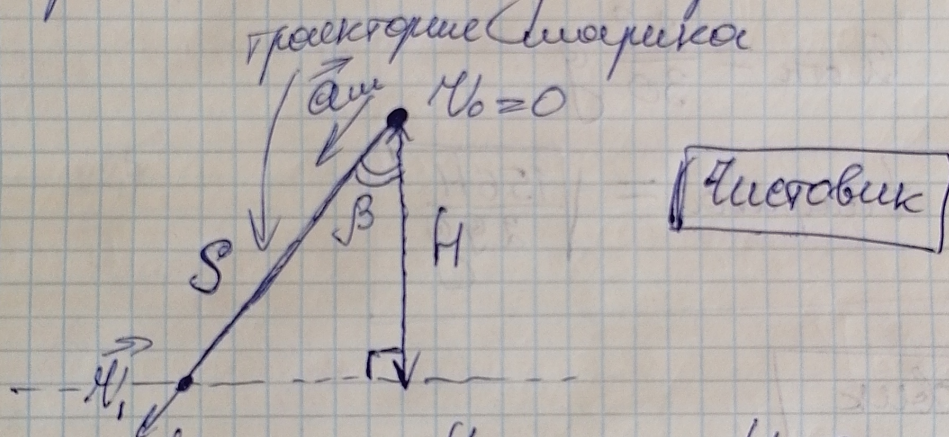 траектория шарика
a⃗ш V₀=0
Чистовик
β
H
S
V⃗₁